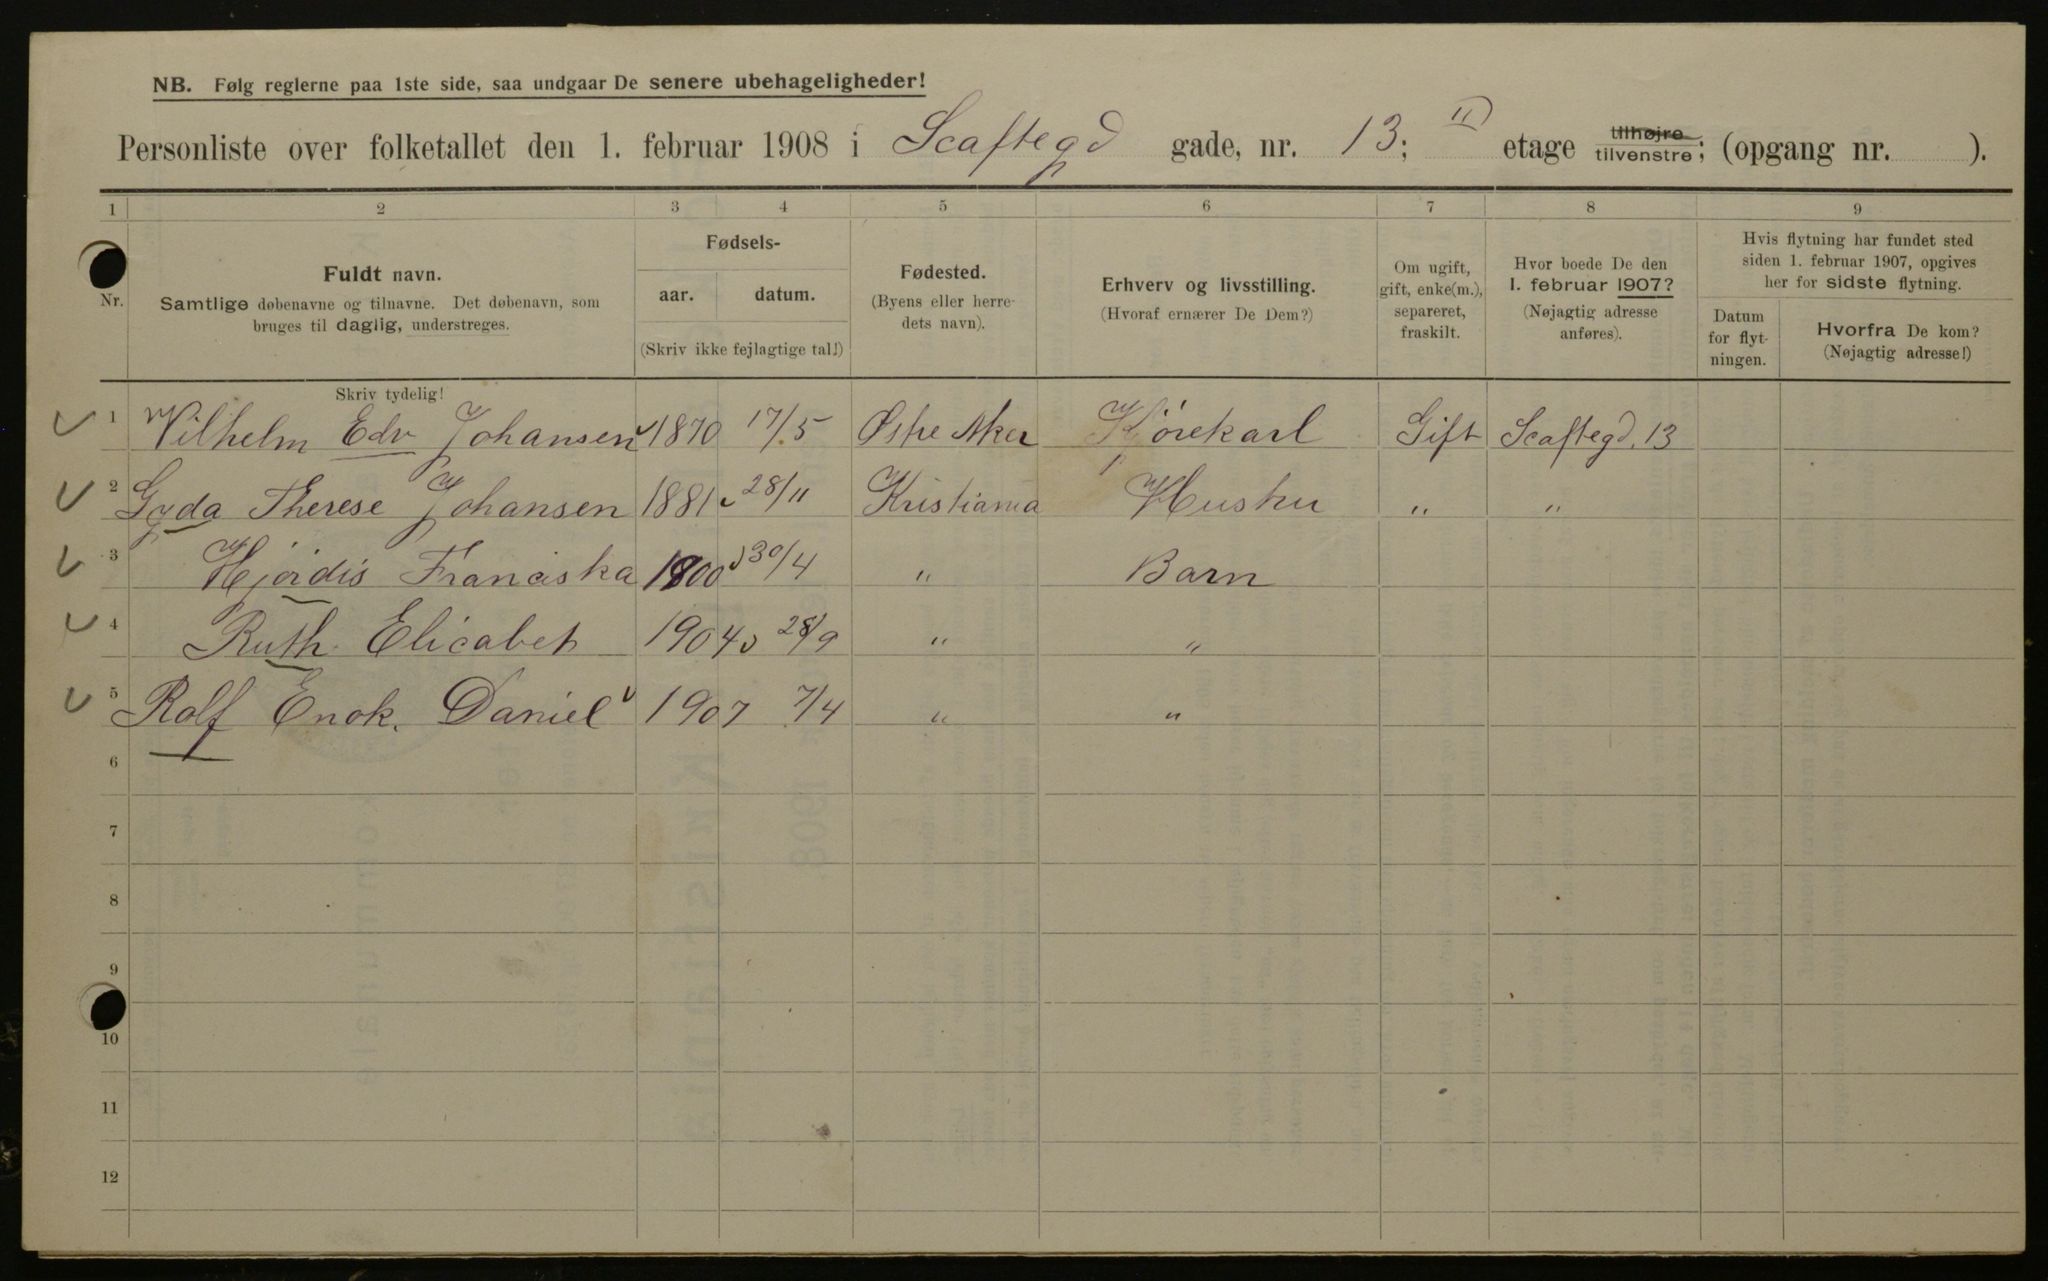 NB. Følg reglerne paa 1ste side, saa undgaar De senere ubehageligheder!
Personliste over folketallet den 1. februar 1908 i Scaftegd gade, nr. 13; II etage tilhøjre tilvenstre; (opgang nr. ).
1 2 3 4 5 6 7 8 9
Nr.
Fuldt navn.
Samtlige døbenavne og tilnavne. Det døbenavn, som
bruges til daglig, understreges.
Fødsels-
aar. datum.
(Skriv ikke fejlagtige tal!)
Fødested.
(Byens eller herre-
dets navn).
Erhverv og livsstilling.
(Hvoraf ernærer De Dem?)
Om ugift,
gift, enke(m.),
separeret,
fraskilt.
Hvor boede De den
1. februar 1907?
(Nøjagtig adresse
anføres).
Hvis flytning har fundet sted
siden 1. februar 1907, opgives
her for sidste flytning.
Datum
for flyt-
ningen.
Hvorfra De kom?
(Nøjagtig adresse!)
Skriv tydelig!
1 Vilhelm Edv Johansen 1870 17/5 Østre Aker Kjörekarl Gift Scaftegd. 13
2 Gyda Therese Johansen 1881 28/11 Kristiania Hustru " "
3 Hjördis Franciska 1900 30/4 " Barn
4 Ruth Elicabet 1904 28/9 " "
5 Rolf Enok. Daniel 1907 7/4 " "
6
7
8
9
10
11
12